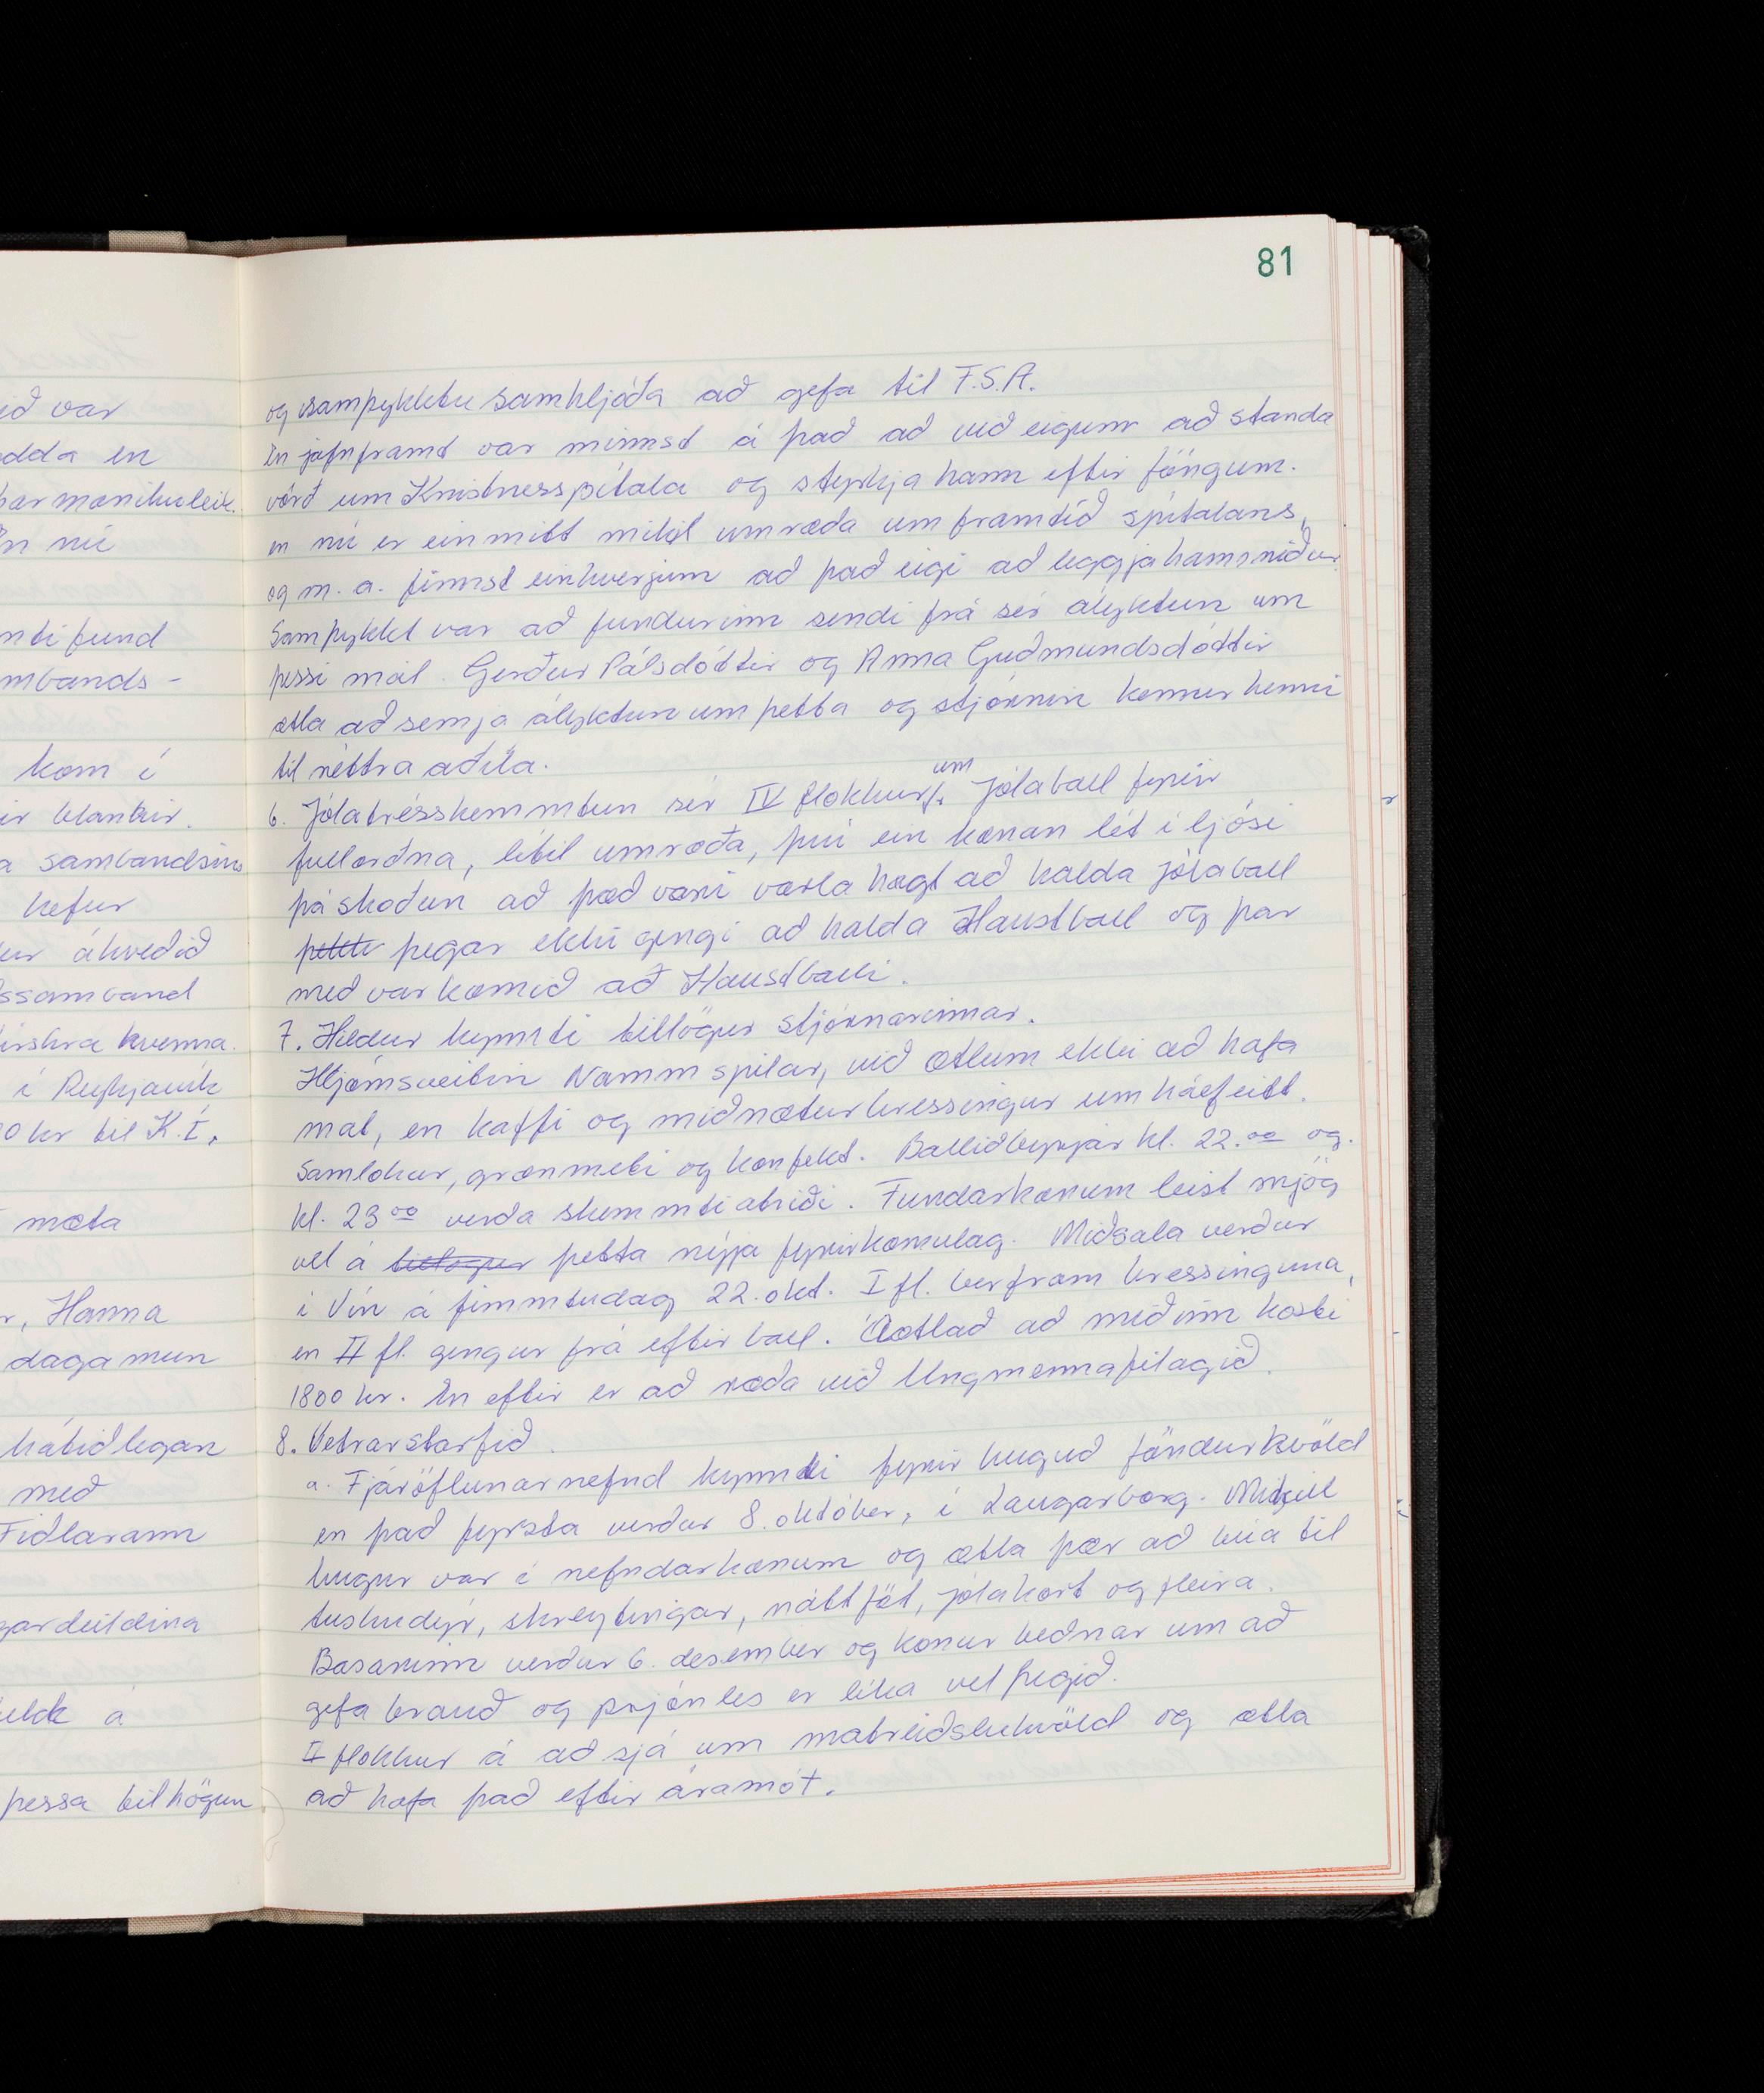 81
ið var
dda en
harmonikuleik.
En nú
nti fund
mbands-
kom í
ir blankir.
a sambandsins
hefur
ur ákveðið
ssamband
irskra kvenna.
í Reykjavík
0 kr til K.Í.
mæta
r, Hanna
daga mun
hátiðlegan
með
Fiðlarann
gardeildina
á
þessa tilhögun
og samþykktu samhljóða að gefa til F.S.A.
En jafnframt var minnst á það að við eigum að standa
vörð um Kristnesspítala og styrkja hann eftir föngum.
en nú er einmitt mikil umræða um framtíð spítalans,
og m.a. finnst einhverjum að það eigi að leggja hann niður.
Samþykkt var að fundurinn sendi frá sér ályktun um
þessi mál. Gerður Pálsdóttir og Anna Guðmundsdóttir
ætla að semja ályktun um þetta og stjórnin kemur henni
til réttra aðila.
6. Jólatrésskemmtun sér IV flokkur um. Jólaball fyrir
fullorðna, lítil umræða, þú ein konan lét í ljósi
þá skoðun að það væri varla hægt að halda jólaball
þegar ekki gengi að halda Haustball og þar
með var komið að Haustballi.
7. Hildur kynnti tillögur stjórnarinnar.
Hljómsveitin Namm spilar, við ætlum ekki að hafa
mat, en kaffi og miðnæturhressingur um hálfeitt.
Samlokur, grænmeti og konfekt. Ballið byrjar kl. 22.00 og
kl. 23 00 verða skemmtiatriði. Fundarkonum leist mjög
vel á tillögur þetta nýja fyrirkomulag. Miðsala verður
í Vín á fimmtudag 22. okt. I fl. ber fram hressinguna,
en II fl. gengur frá eftir ball. Áætlað að miðinn kosti
1800 kr. En eftir er að ræða við Ungmennafélagið.
8. Vetrarstarfið.
a. Fjáröflunarnefnd kynnti fyrirhuguð föndurkvöld
en það fyrsta verður 8. október, í Laugarborg. Mikill
hugur var í nefndarkonum og ætla þær að búa til
tuskudýr, skreytingar, náttföt, jólakort og fleira.
Basarinn verður 6. desember og konur beðnar um að
gefa brauð og prjónles er líka vel þegið.
II flokkur á að sjá um matreiðslukvöld og ætla
að hafa það eftir áramót.